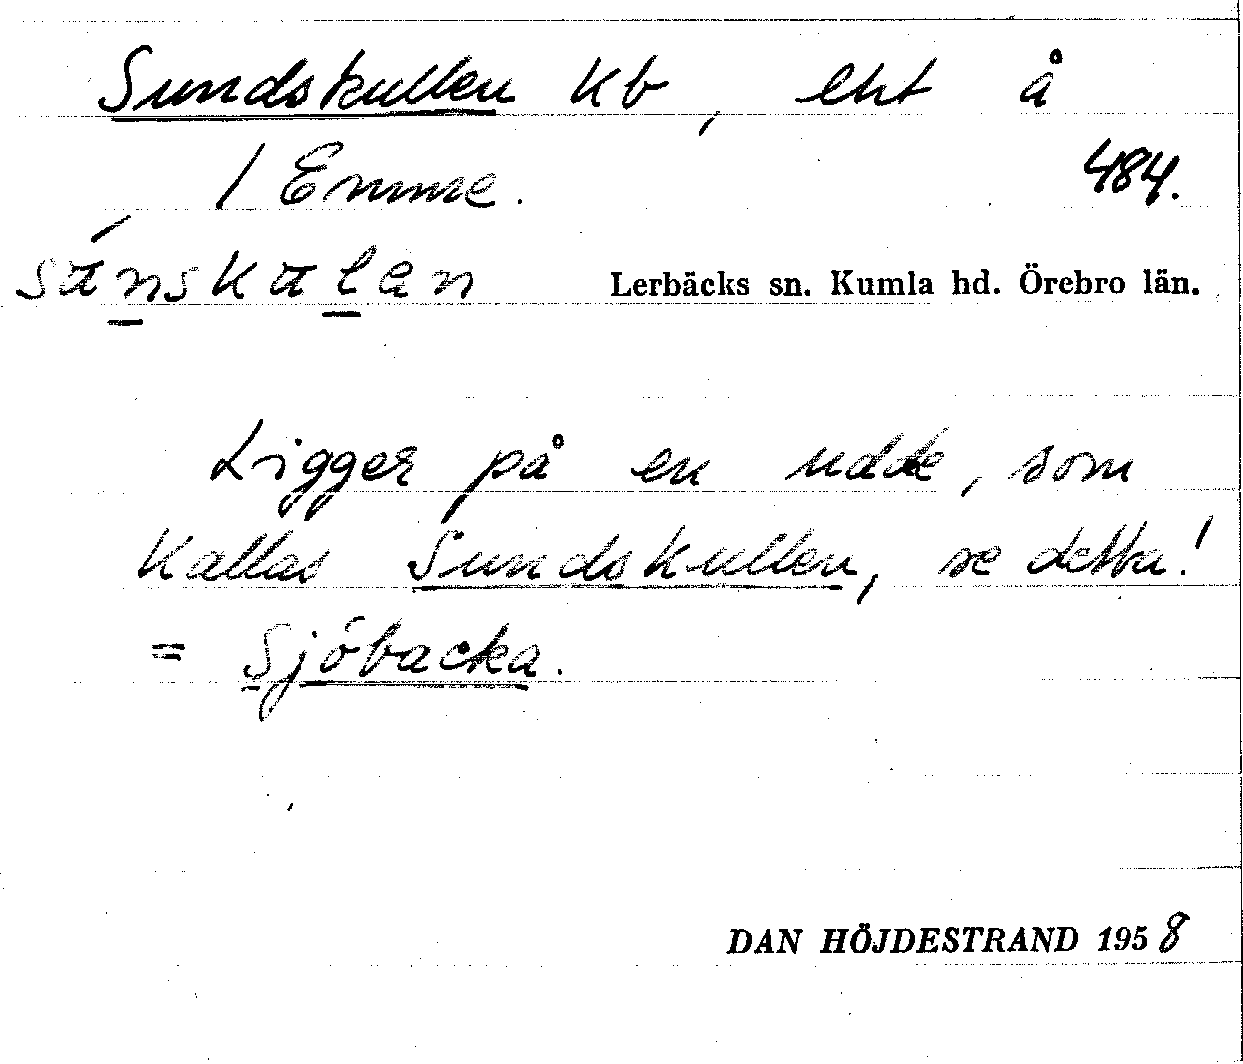 Sundskullen kb, eht å
1 Emme. 484.
sánskalan Lerbäcks sn. Kumla hd. Örebro län.
Ligger på en udde, som
kallas Sundskullen, se detta!
= Sjöbacka.
DAN HÖJDESTRAND 1958